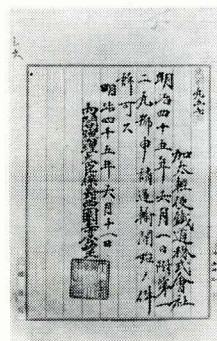 加太軽便鐵道株式會社
明治四十五年六月一日附第一
二九號申請運輸開始ノ件
許可ス
明治四十五年六月十一日
內閣總理大臣侯爵西園寺公望